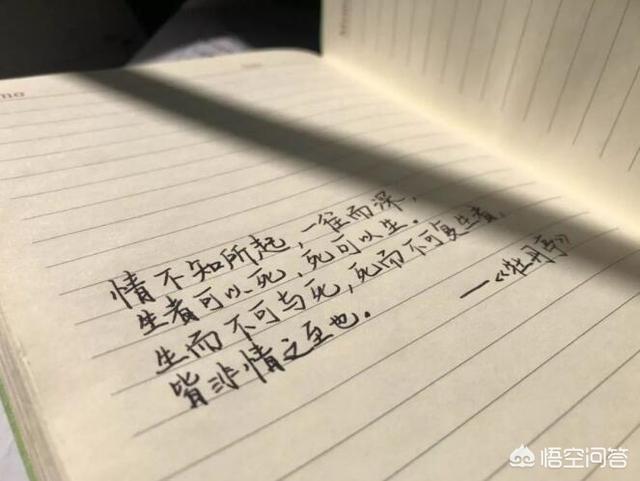 情不知所起，一往而深，
生者可以死，死可以生。
生而不可与死，死而不可复生者，
皆非情之至也。
——《牡丹亭》
悟空问答